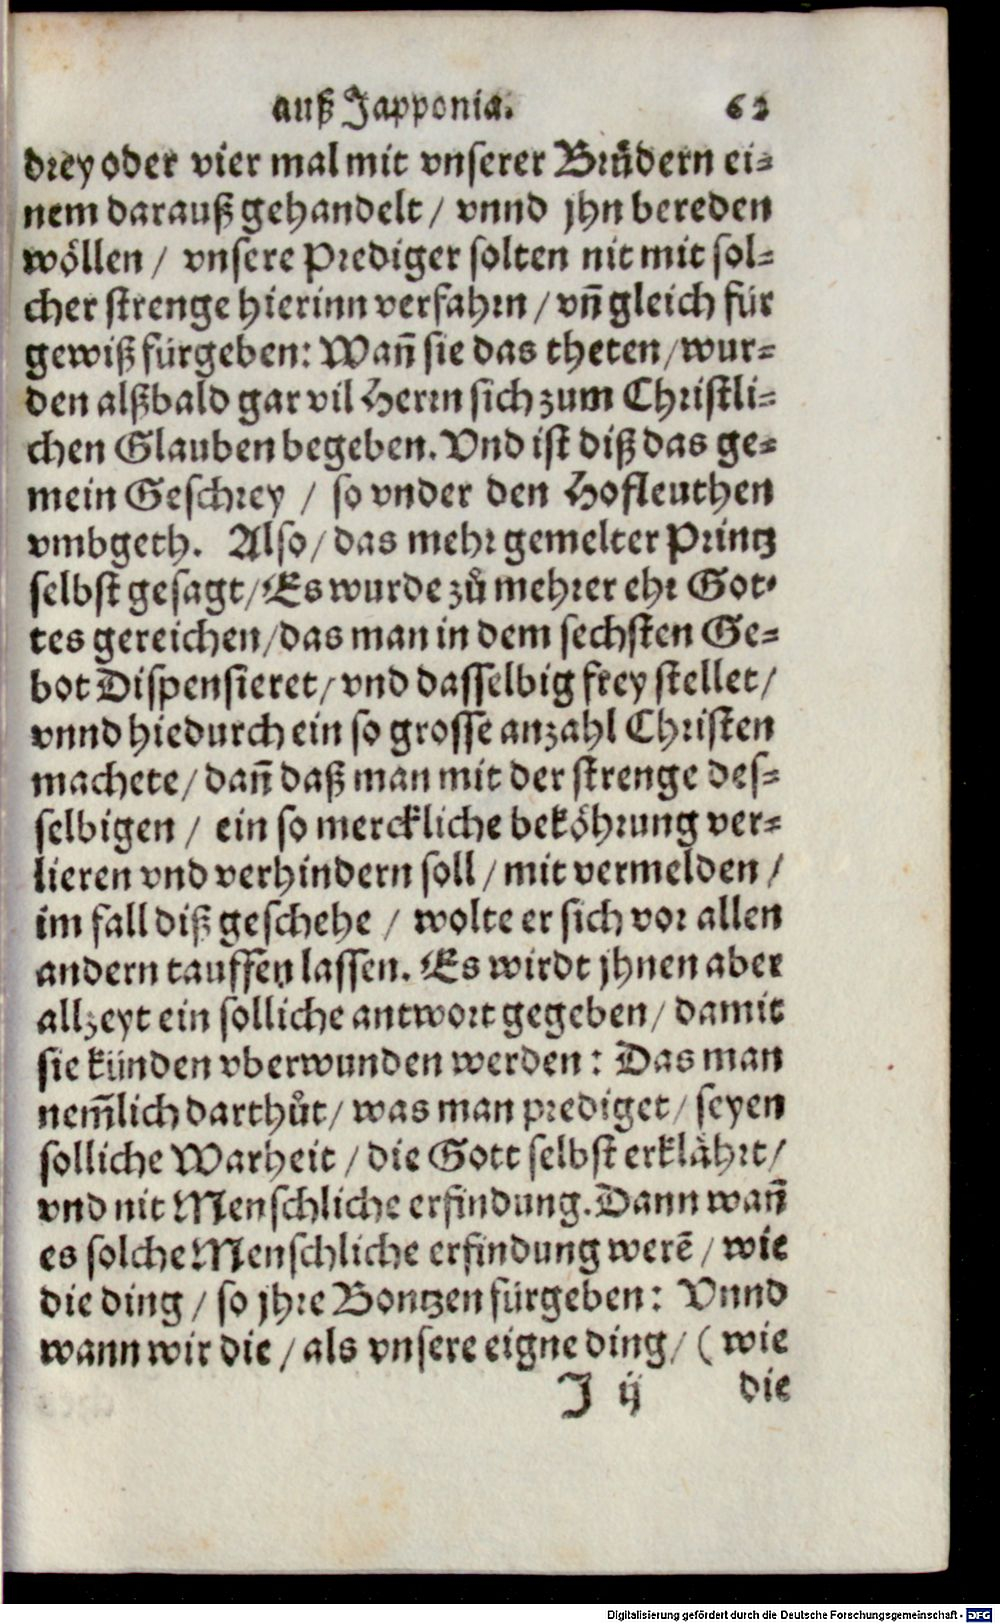 auß Japponia. 62
drey oder vier mal mit vnserer Brůdern ei-
nem darauß gehandelt / vnnd jhn bereden
wöllen / vnsere Prediger solten nit mit sol-
cher strenge hierinn verfahrn / vñ gleich für
gewiß fürgeben: Wañ sie das theten / wur-
den alßbald gar vil Herrn sich zum Christli-
chen Glauben begeben. Vnd ist diß das ge-
mein Geschrey / so vnder den Hofleuthen
vmbgeth. Also / das mehr gemelter Printz
selbst gesagt / Es wurde zů mehrer ehr Got-
tes gereichen / das man in dem sechsten Ge-
bot Dispensieret / vnd dasselbig frey stellet /
vnnd hiedurch ein so grosse anzahl Christen
machete / dañ daß man mit der strenge des-
selbigen / ein so merckliche beköhrung ver-
lieren vnd verhindern soll / mit vermelden /
im fall diß geschehe / wolte er sich vor allen
andern tauffen lassen. Es wirdt jhnen aber
allzeyt ein solliche antwort gegeben / damit
sie künden vberwunden werden: Das man
nem̃lich darthůt / was man prediget / seyen
solliche Warheit / die Gott selbst erklährt /
vnd nit Menschliche erfindung. Dann wañ
es solche Menschliche erfindung werẽ / wie
die ding / so jhre Bontzen fürgeben: Vnnd
wann wir die / als vnsere eigne ding / (wie
J ij die
Digitalisierung gefördert durch die Deutsche Forschungsgemeinschaft - DFG